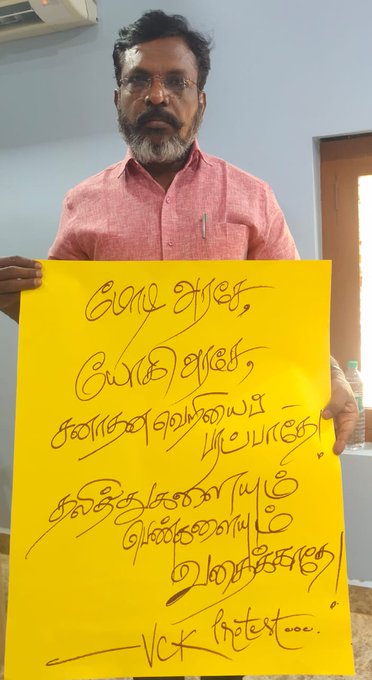 மோடி அரசே,
யோகி அரசே,
சனாதன வெறியைப்
பரப்பாதே!
தலித்துகளையும்
பெண்களையும்
வதைக்காதே!
VCK Protest....